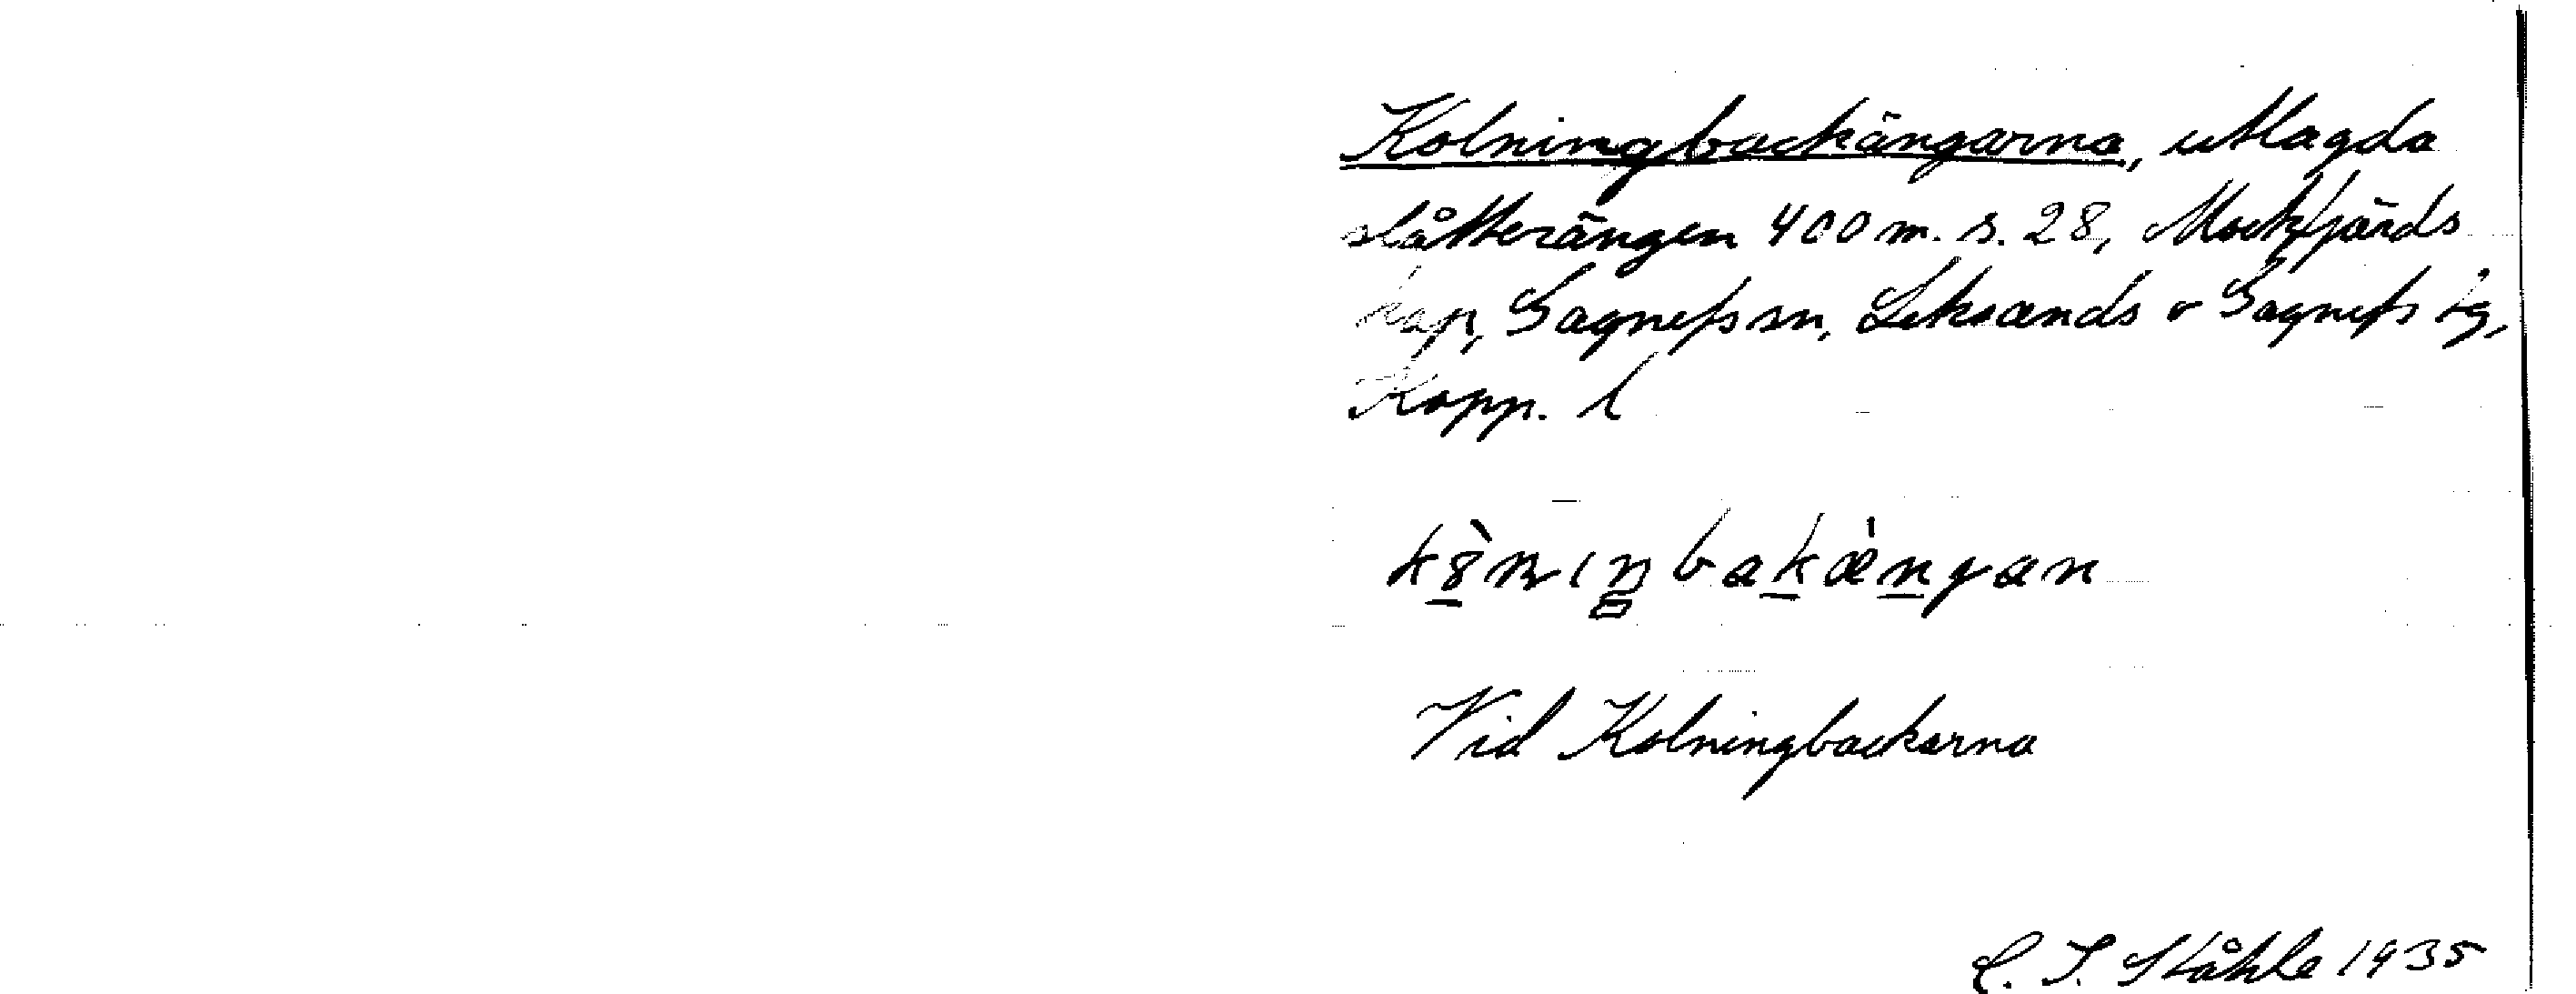 Kolningbackängarna, utlagda
slåtterängen 400 m. s. 28, Mockfjärds
kap, Gagnefs sn, Leksands o Gagnefs tg,
Kopp. l
kȣ̀nıŋbakæ̀ngan
Vid Kolningbackarna
C. I. Ståhle 1935